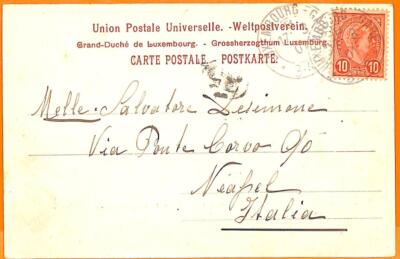 Union Postale Universelle. - Weltpostverein.
Grand-Duché de Luxembourg. - Grossherzogthum Luxemburg
CARTE POSTALE. - POSTKARTE.
LUXEMBOURG-GARE
10 10
Melle Salvatore Desimone
Via Ponte Corvo 90
Neapel
Italia